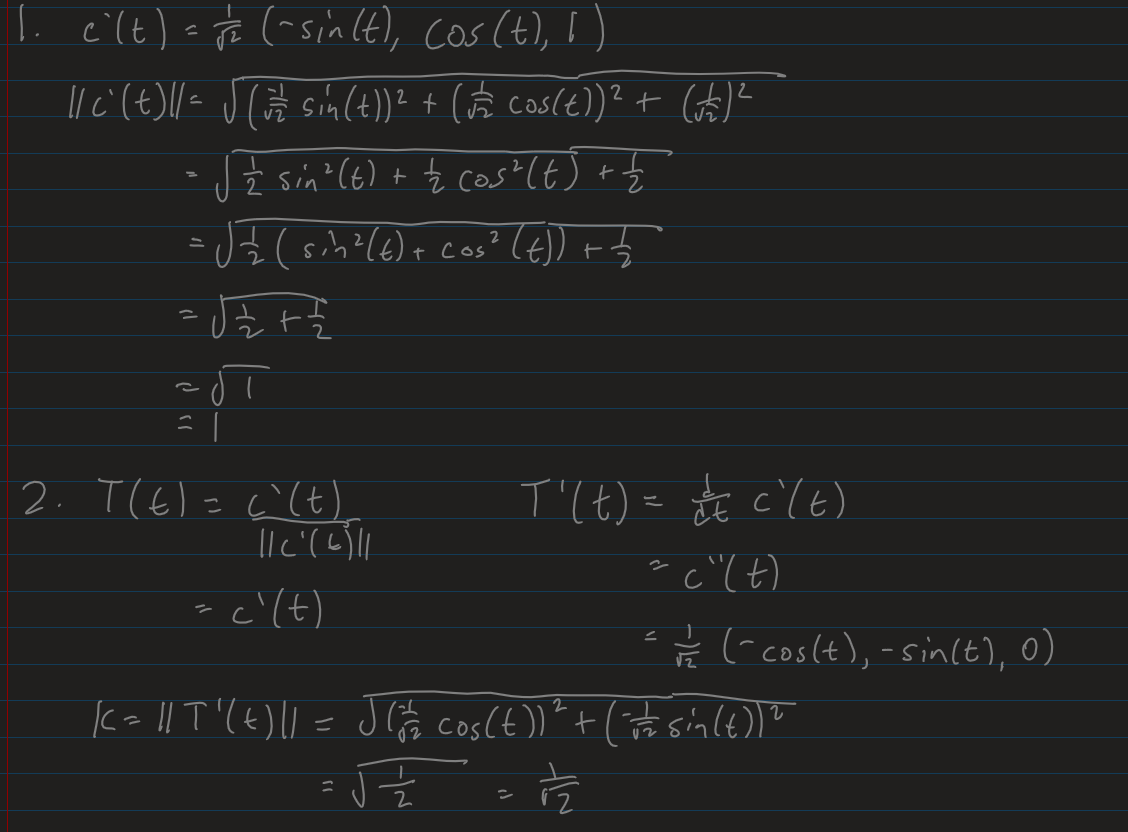 1. c'(t) = 1/√2 (-sin(t), cos(t), 1)
||c'(t)|| = √((-1/√2 sin(t))² + (1/√2 cos(t))² + (1/√2)²)
= √(1/2 sin²(t) + 1/2 cos²(t) + 1/2)
= √(1/2 (sin²(t) + cos²(t)) + 1/2)
= √(1/2 + 1/2)
= √1
= 1
2. T(t) = c'(t)/||c'(t)||
= c'(t)
T'(t) = d/dt c'(t)
= c''(t)
= 1/√2 (-cos(t), -sin(t), 0)
K = ||T'(t)|| = √((-1/√2 cos(t))² + (-1/√2 sin(t))²)
= √(1/2) = 1/√2